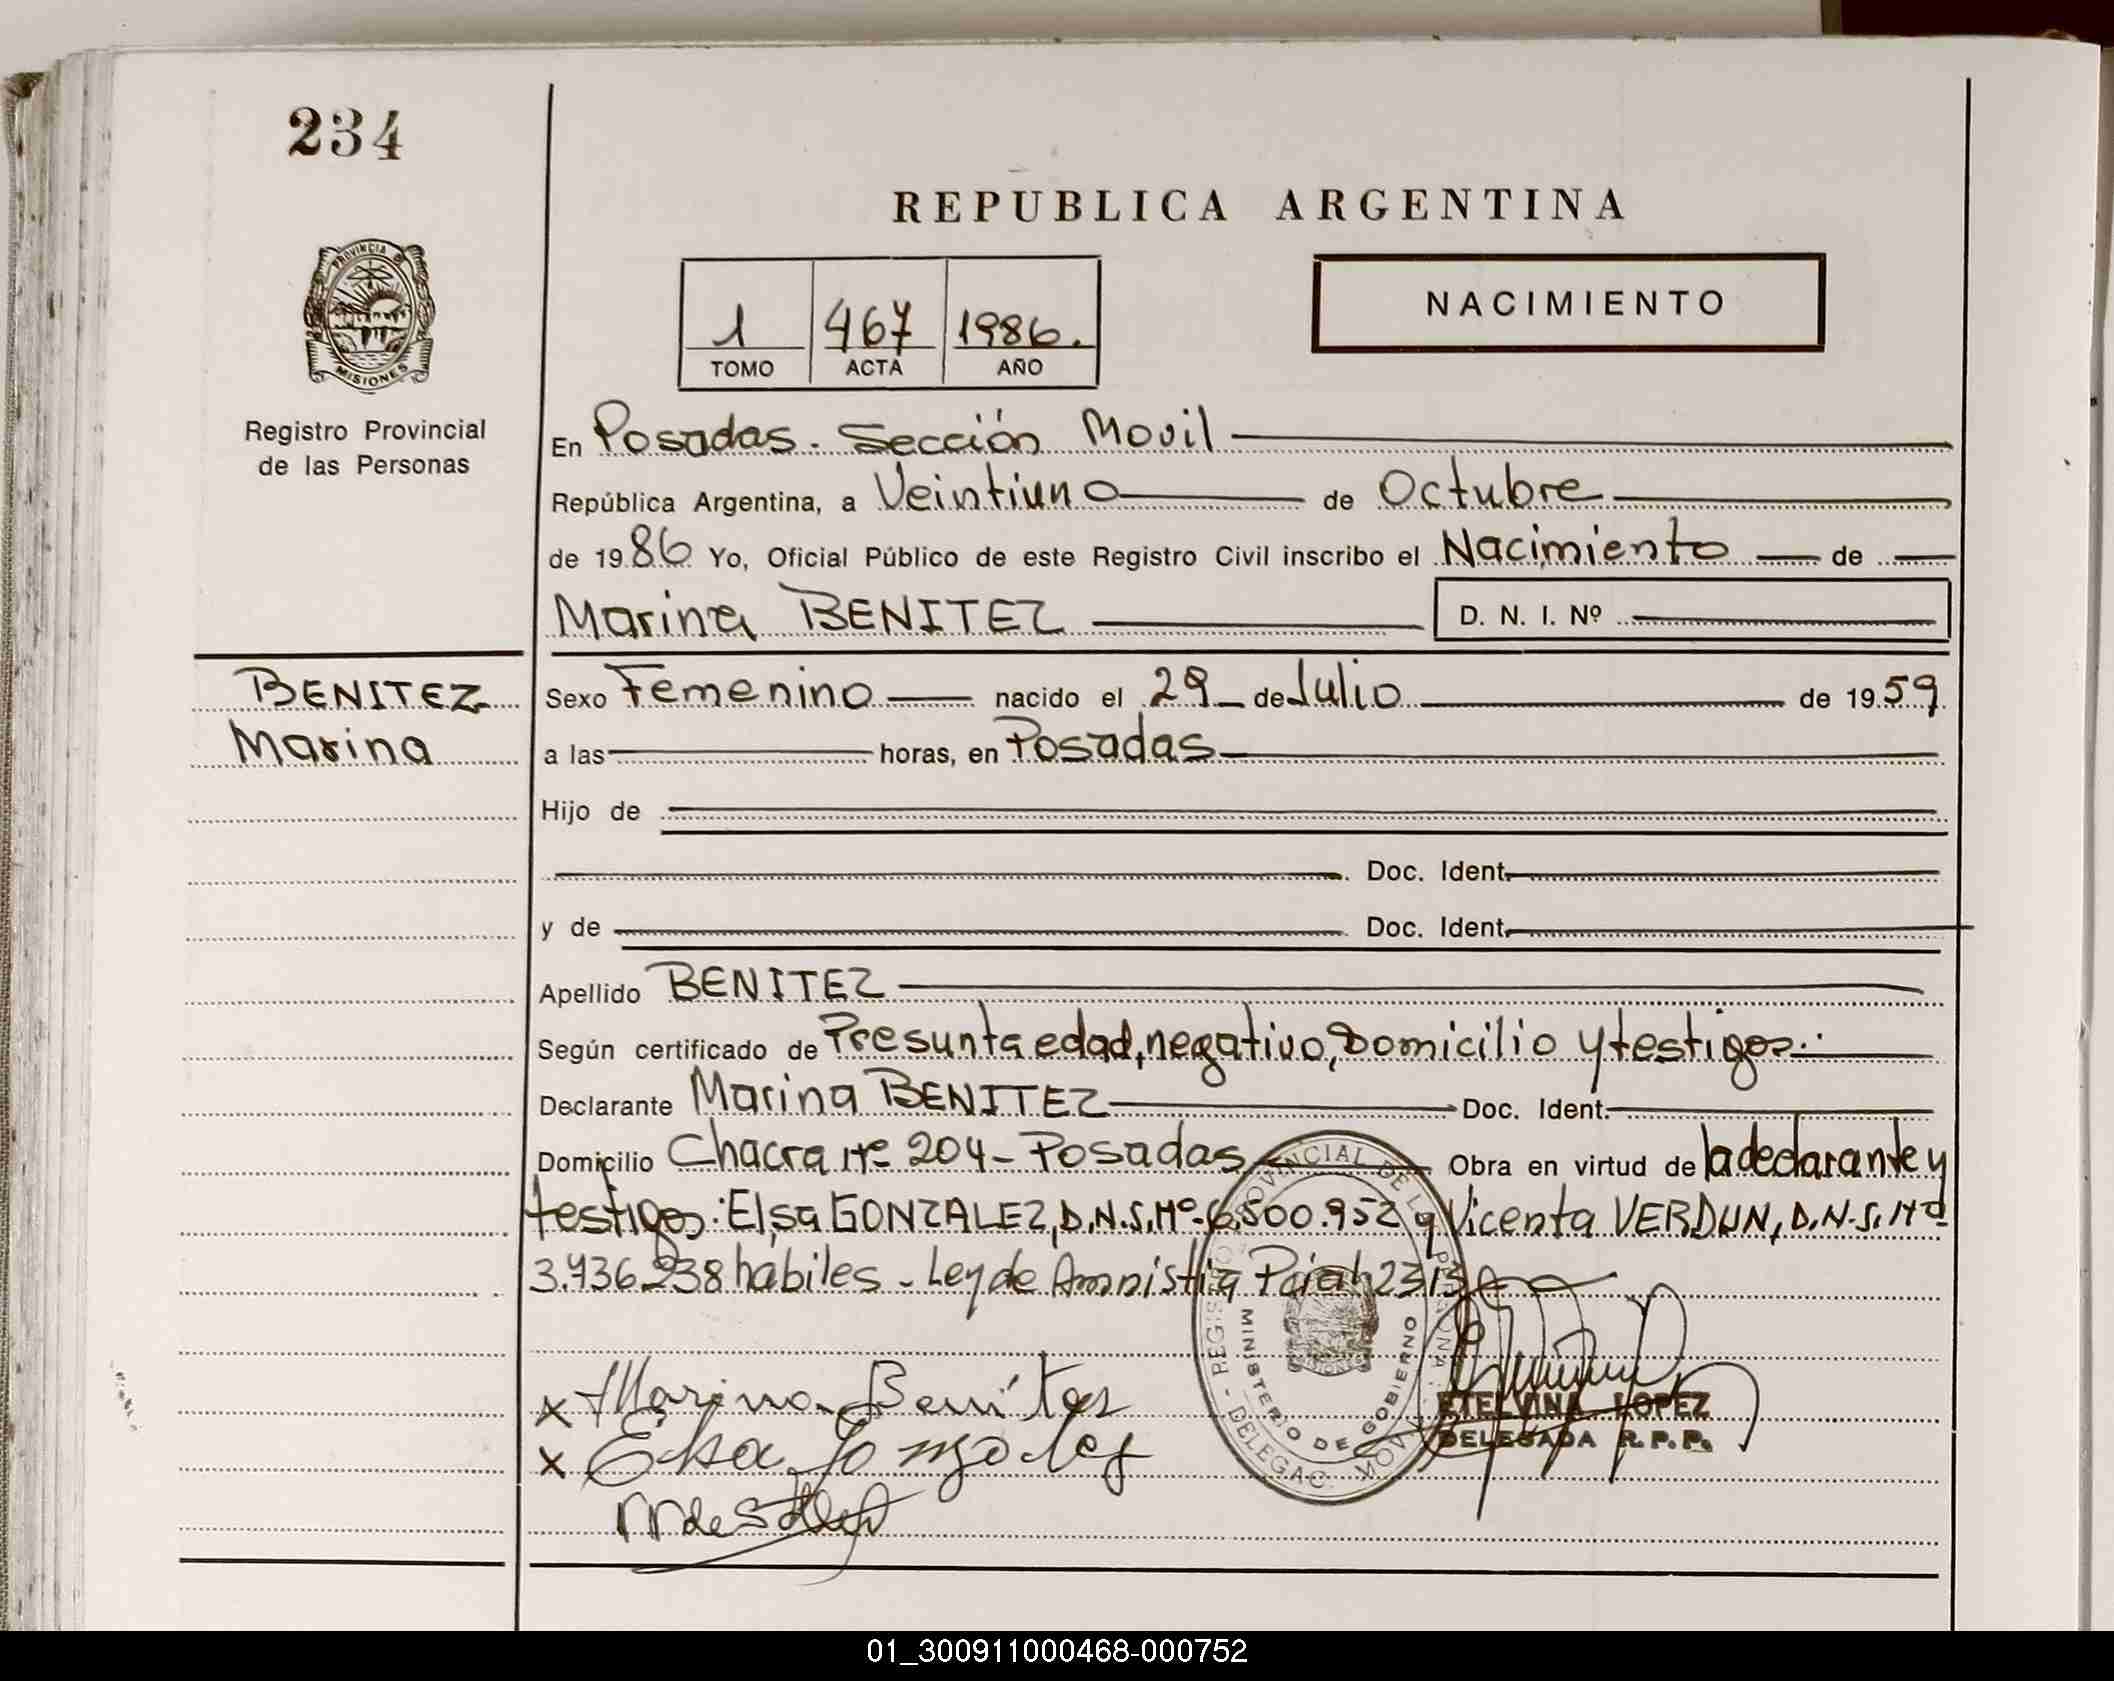 234
REPUBLICA ARGENTINA
PROVINCIA D
MISIONES
Registro Provincial
de las Personas
1 467 1986.
TOMO ACTA AÑO
NACIMIENTO
En Posadas. Sección Movil
República Argentina, a Veintiuno de Octubre
de 1986 Yo, Oficial Público de este Registro Civil inscribo el Nacimiento de
Marina BENITEZ D. N. I. Nº
BENITEZ
Marina
Sexo Femenino nacido el 29 de Julio de 1959
a las horas, en Posadas
Hijo de
Doc. Ident.
y de Doc. Ident.
Apellido BENITEZ
Según certificado de Presunta edad, negativo, Domicilio y testigos.
Declarante Marina BENITEZ Doc. Ident.
Domicilio Chacra Nº 204 - Posadas Obra en virtud de la declarante y
testigos: Elsa GONZALEZ, D.N.I. Nº 6.500.952 y Vicenta VERDUN, D.N.I. Nº
3.936.238 hábiles - Ley de Amnistia Pcial 2313
REGISTRO PROVINCIAL DE L PERSONA - DELEGAC. MOVIL
MINISTERIO DE GOBIERNO
x Marina Benites
x Elsa Gonzalez
ETELVINA LOPEZ
DELEGADA R.P.P.
01_300911000468-000752